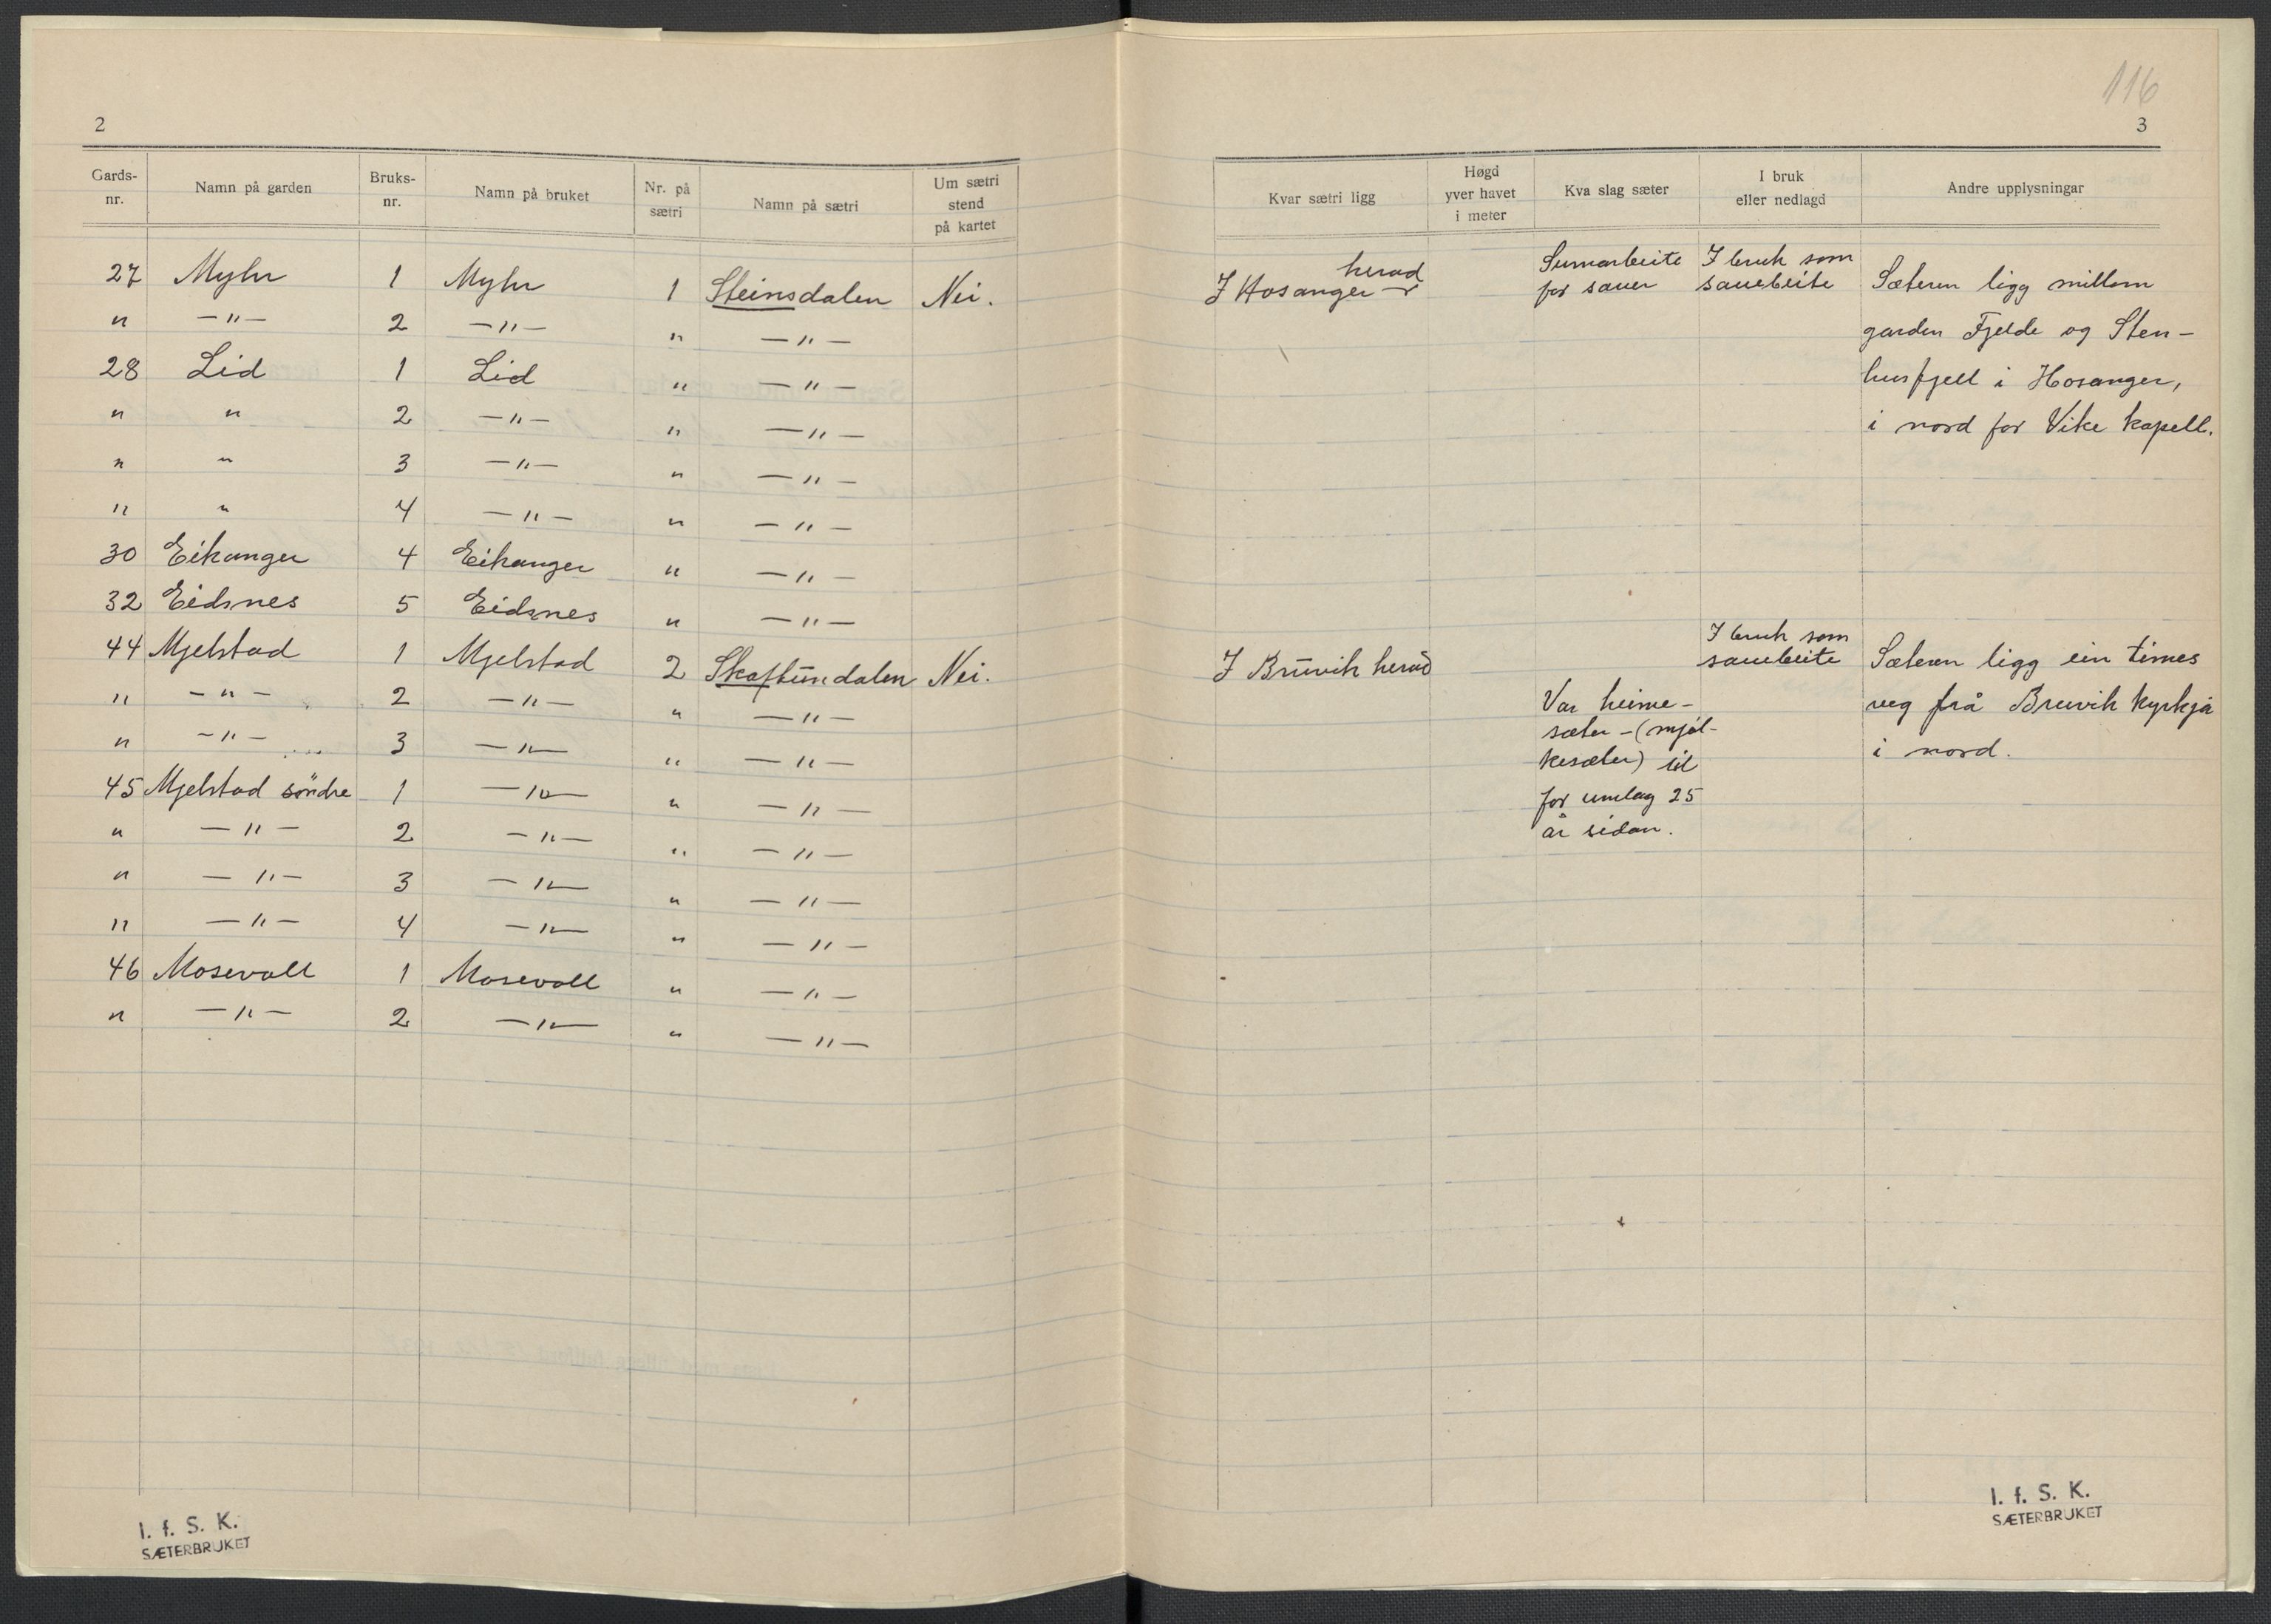 2
Gards-nr. Namn på garden Bruks-nr. Namn på bruket Nr. på sætri Namn på sætri Um sætri stend på kartet
27 Myhr 1 Myhr 1 Steinsdalen Nei.
" —"— 2 —"— " —"—
28 Lid 1 Lid " —"—
" " 2 —"— " —"—
" " 3 —"— " —"—
" " 4 —"— " —"—
30 Eikanger 4 Eikanger " —"—
32 Eidsnes 5 Eidsnes " —"—
44 Mjelstad 1 Mjelstad 2 Skaftundalen Nei.
" —"— 2 —"— " —"—
" —"— 3 —"— " —"—
45 Mjelstad söndre 1 —"— " —"—
" —"— 2 —"— " —"—
" —"— 3 —"— " —"—
" —"— 4 —"— " —"—
46 Mosevoll 1 Mosevoll " —"—
" —"— 2 —"— " —"—
I. f. S. K.
SÆTERBRUKET
116
3
Kvar sætri ligg Høgd yver havet i meter Kva slag sæter I bruk eller nedlagd Andre upplysningar
I Hosanger herad
Sumarbeite
for sauer
I bruk som
sauebeite
Sæteren ligg millom
garden Fjelde og Sten-
husfjell i Hosanger,
i nord for Vike kapell.
I Bruvik herad
Var heime-
sæter - (mjøl-
kesæter) til
for umlag 25
år sidan.
I bruk som
sauebeite
Sæteren ligg ein times
veg frå Bruvik kyrkja
i nord.
I. f. S. K.
SÆTERBRUKET